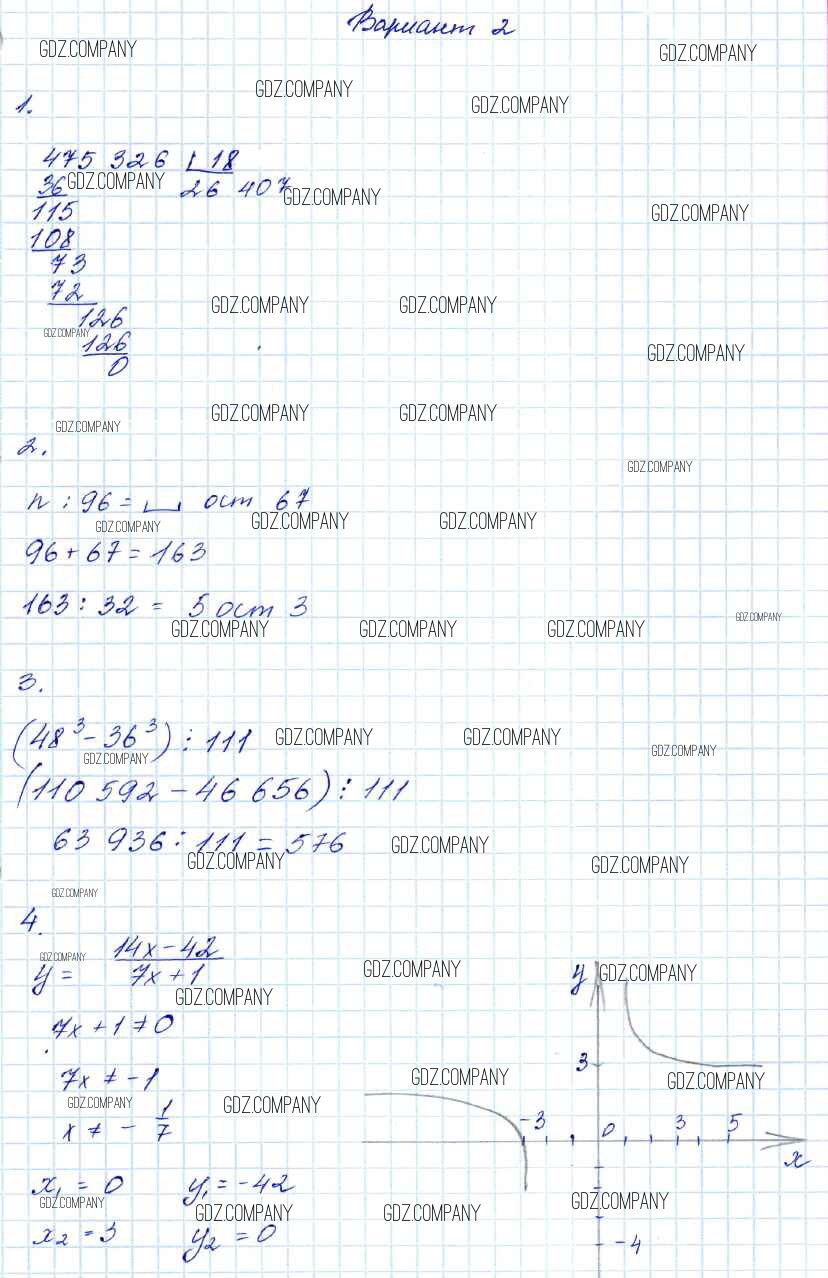 Вариант 2
GDZ.COMPANY GDZ.COMPANY
GDZ.COMPANY GDZ.COMPANY
1.
475 326 18
36 GDZ.COMPANY 26 407 GDZ.COMPANY
GDZ.COMPANY
115
108
73
72
GDZ.COMPANY GDZ.COMPANY
126
GDZ.COMPANY 126
GDZ.COMPANY
0
GDZ.COMPANY GDZ.COMPANY
GDZ.COMPANY
2.
GDZ.COMPANY
n : 96 = ост 67
GDZ.COMPANY GDZ.COMPANY GDZ.COMPANY
96 + 67 = 163
163 : 32 = 5 ост 3
GDZ.COMPANY GDZ.COMPANY GDZ.COMPANY GDZ.COMPANY
3.
(48³ - 36³) : 111 GDZ.COMPANY GDZ.COMPANY
GDZ.COMPANY GDZ.COMPANY
(110 592 - 46 656) : 111
63 936 : 111 = 576 GDZ.COMPANY
GDZ.COMPANY GDZ.COMPANY
GDZ.COMPANY
4.
14x - 42
GDZ.COMPANY
y =
7x + 1
GDZ.COMPANY y GDZ.COMPANY
GDZ.COMPANY
7x + 1 ≠ 0
3
7x ≠ -1 GDZ.COMPANY GDZ.COMPANY
GDZ.COMPANY GDZ.COMPANY
x ≠ - 1/7
-3 0 3 5
x
x₁ = 0 y₁ = -42
GDZ.COMPANY GDZ.COMPANY GDZ.COMPANY GDZ.COMPANY
x₂ = 3 y₂ = 0
-4